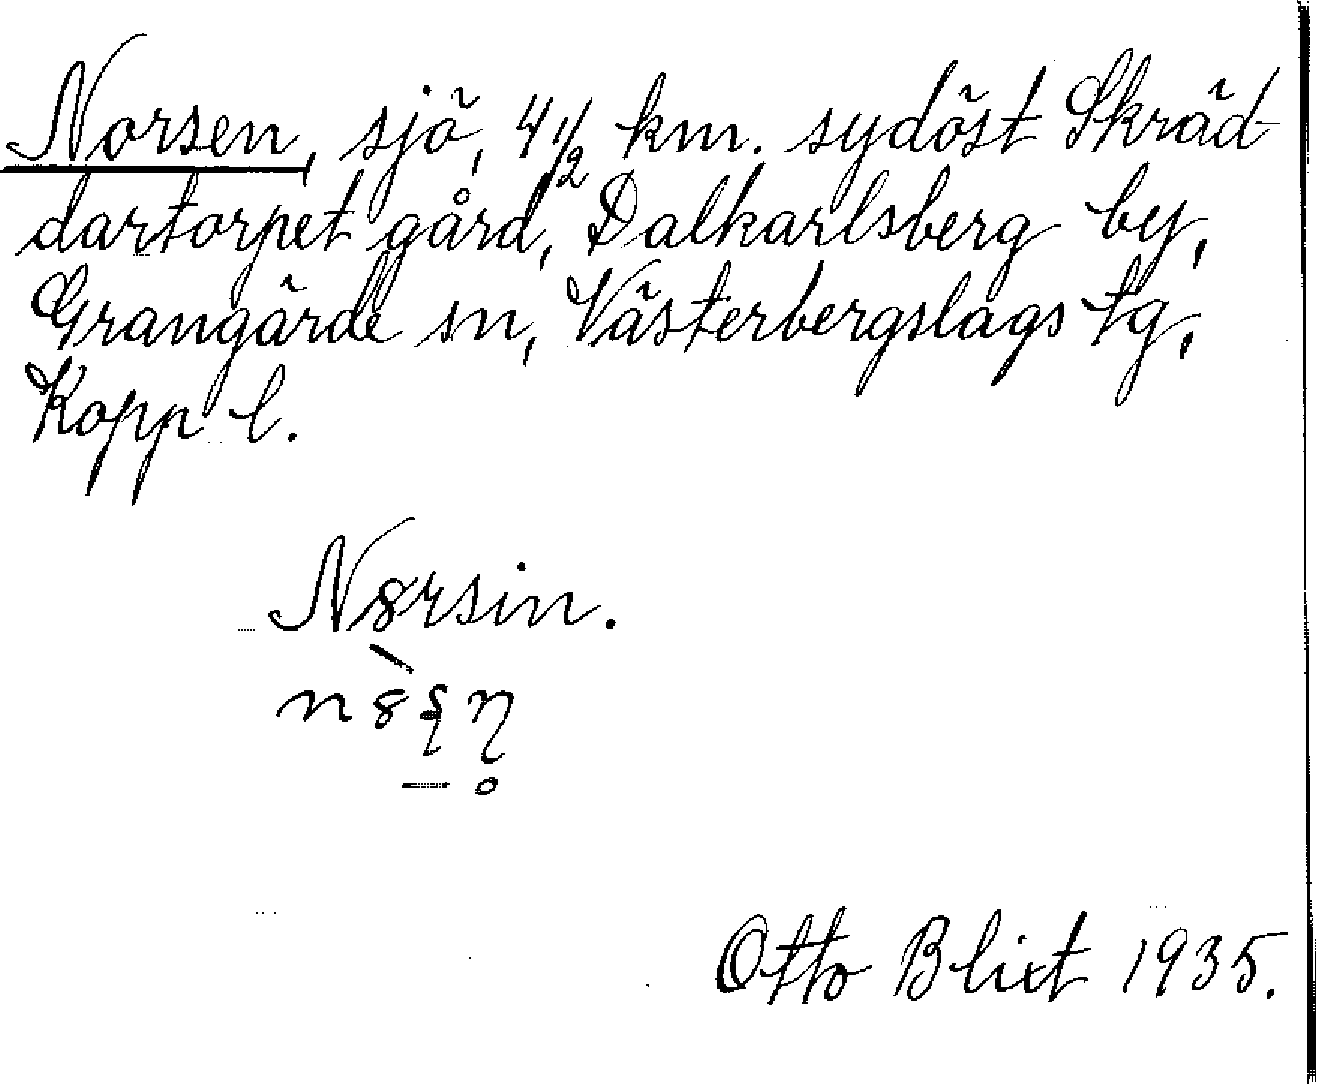 Norsen, sjö, 4 1/2 km. sydöst Skräd-
dartorpet gård, Dalkarlsberg by,
Grangärde sn, Västerbergslags tg,
Kopp l.
N8rsin.
Otto Blixt 1935.